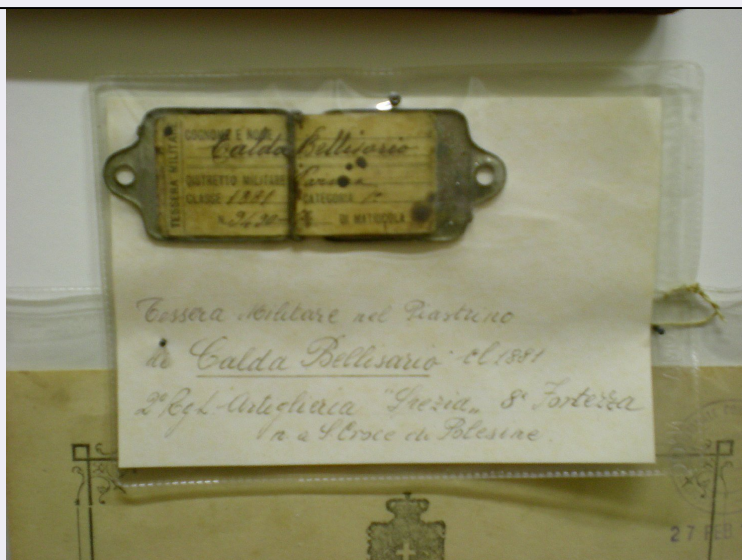 TESSERA MILITARE
COGNOME E NOME
Calda Bellisario
DISTRETTO MILITARE Parma
CLASSE 1881 CATEGORIA 1ª
N. DI MATRICOLA
Tessera Militare nel Piastrino
di Calda Bellisario cl 1881
2º Regt. Artiglieria "Spezia" 8ª Fortezza
n a S. Croce di Polesine
27 FEB